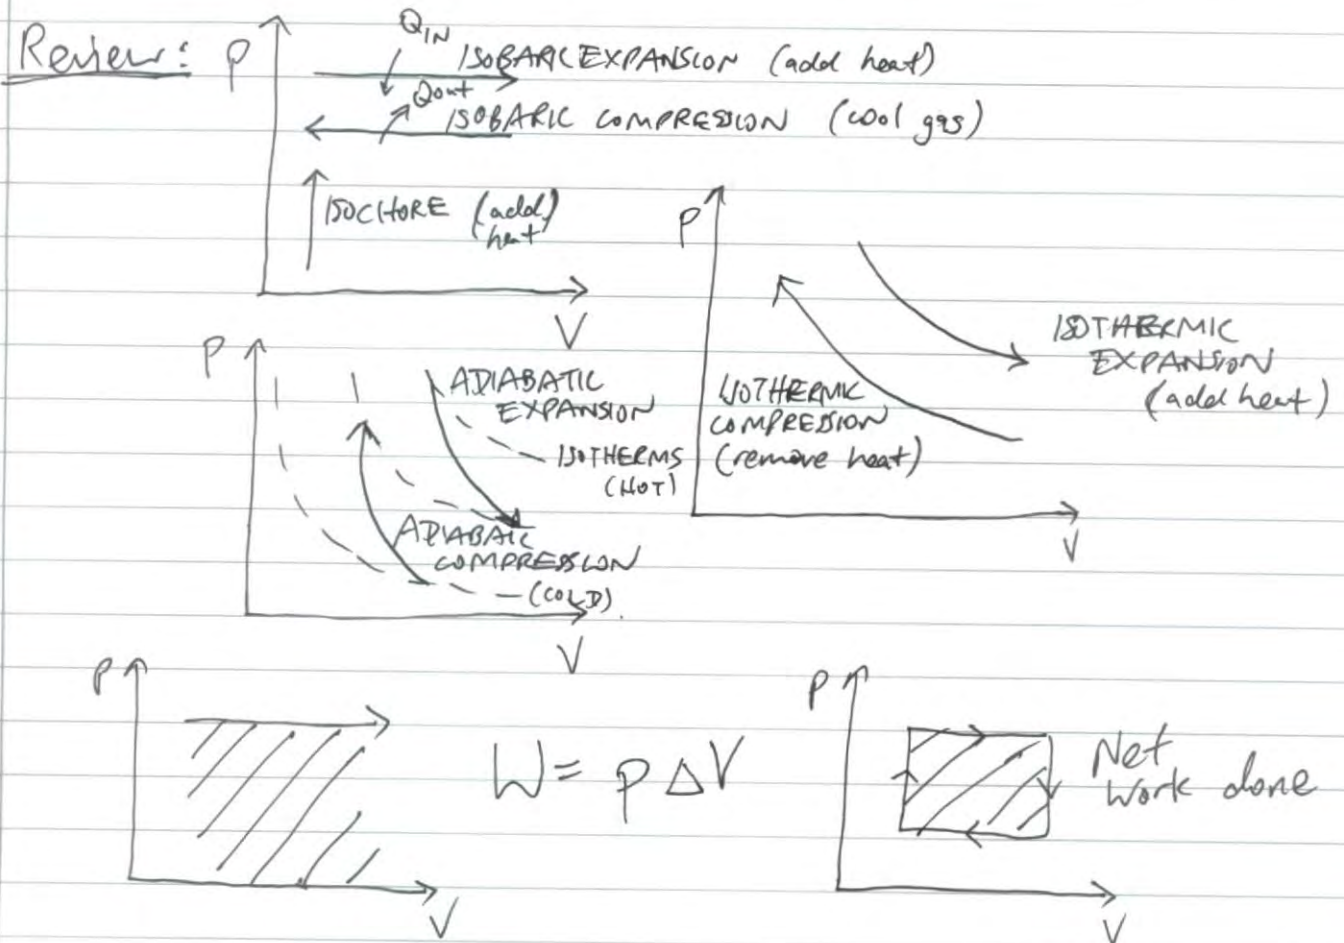 Review:
P
QIN
ISOBARIC EXPANSION (add heat)
Qout
ISOBARIC COMPRESSION (cool gas)
ISOCHORE (add
heat)
V
P
ISOTHERMIC
EXPANSION
(add heat)
ISOTHERMIC
COMPRESSION
(remove heat)
V
P
ADIABATIC
EXPANSION
ISOTHERMS
(HOT)
ADIABAIC
COMPRESSION
(COLD)
V
P
W = p ΔV
V
P
Net
work done
V